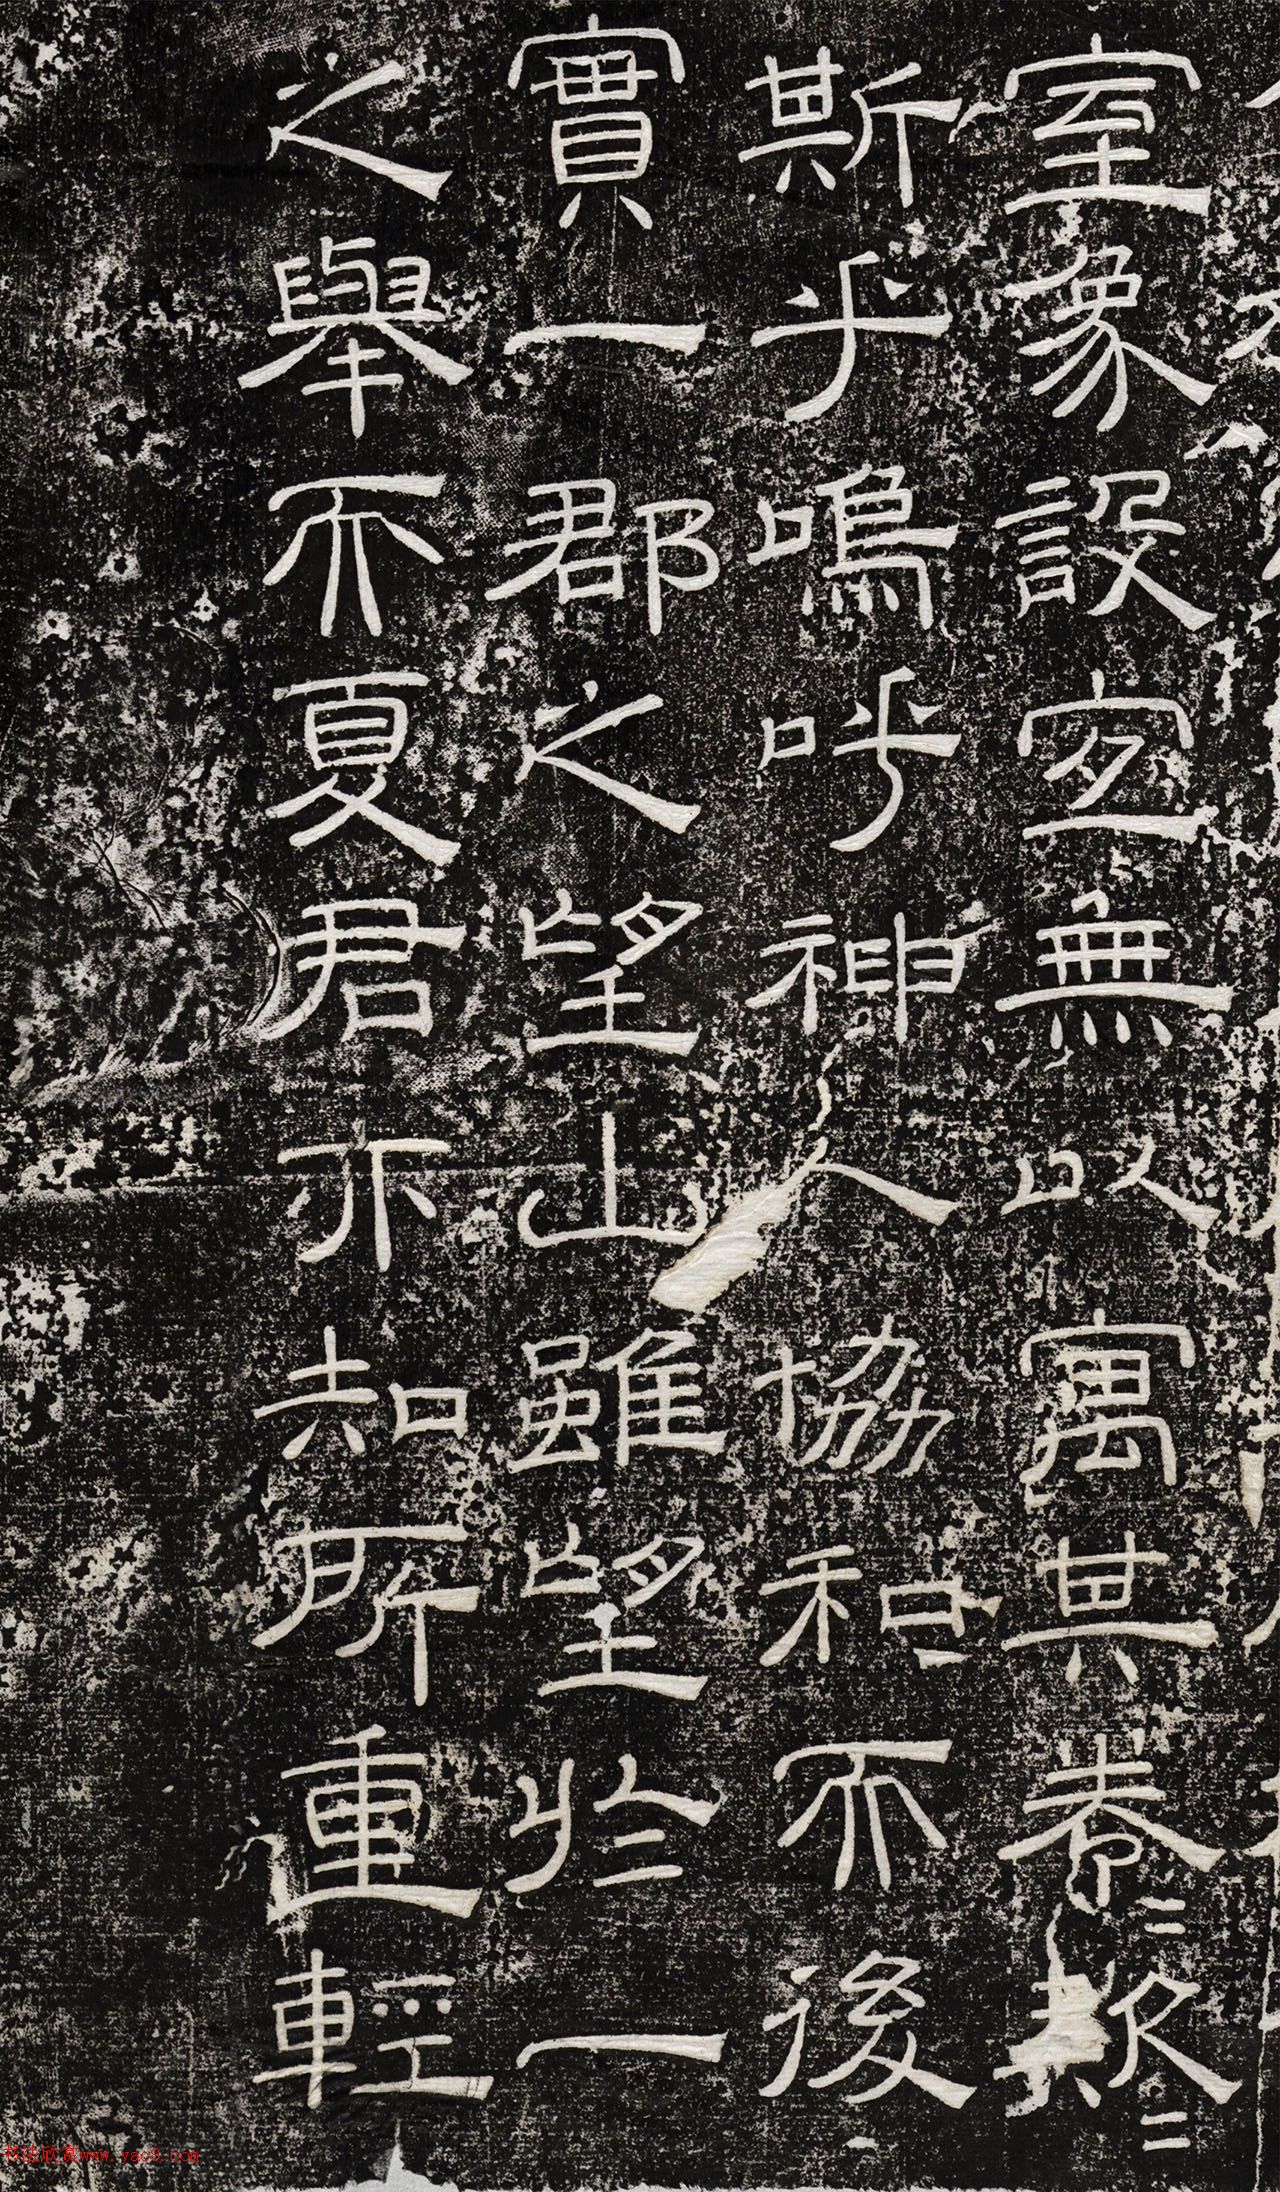 室象設空無以寓其拳〻欵〻
斯乎嗚呼神人協和不後
實一郡之望山雖望於一
之舉不夏君亦知所重輕
书法欣赏www.yac8.com